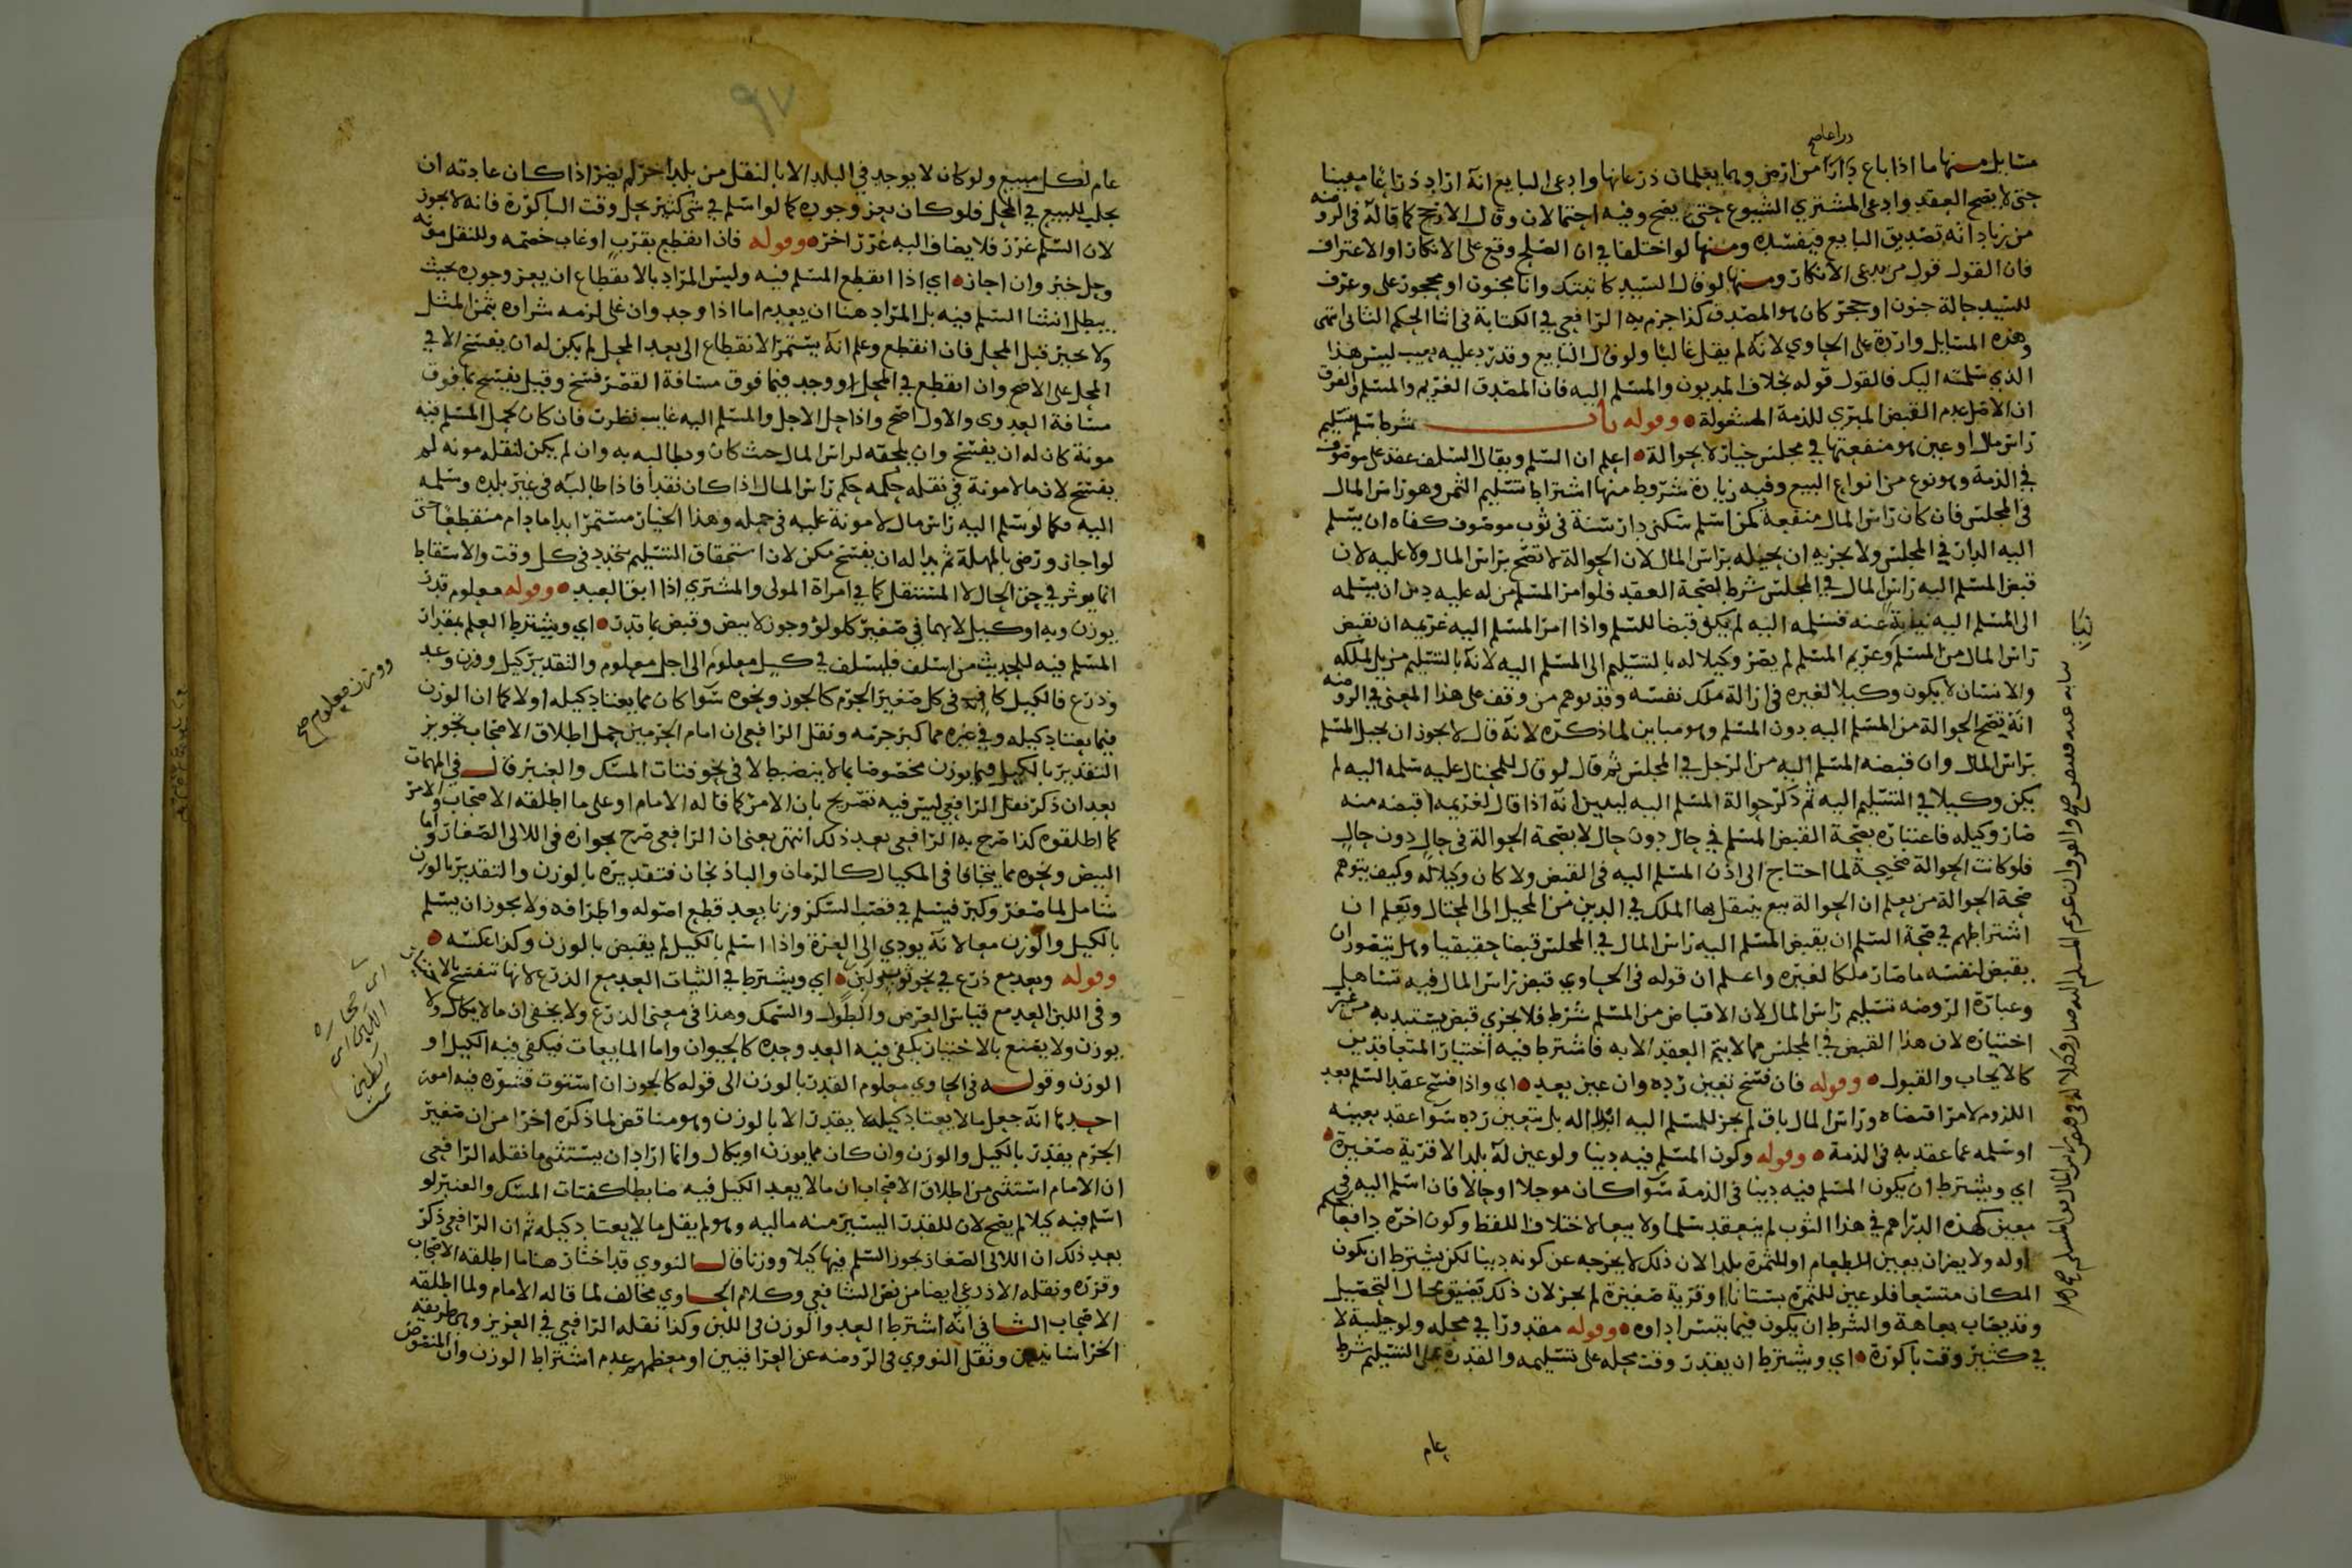 دراعا صح
مسايل منها ما اذا باع ذراعا من ارض وهما يعلمان ذرعانها وادعى البايع انه اراد ذراعا معينا
حتى لا يصح العقد وادعى المشتري الشيوع حتى يصح وفيه احتمالان وقال الارجح كما قاله في الروضه
من زياداته تصديق البايع فيفسده ومنها لو اختلفا في ان الصلح وقع على الانكار او الاعتراف
فان القول قول من يدعى الانكار ومنها لو قال السيد كاتبتك وانا مجنون او محجور على وعرف
للسيد حالة جنون او حجر كان هو المصدق كذا جزم به الرافعي في الكتابة في اثنا الحكم الثاني انتهى
وهذه المسايل وارده على الحاوي لانه لم يقل غالبا ولو قال البايع وقد رد عليه بعيب ليس هذا
الذي سلمته اليك فالقول قوله بخلاف المديون والمسلم اليه فان المصدق الغريم والمسلم والفرق
ان الاصل عدم القبض المبري للذمة المشغولة وقوله باب شرط سلم تسليم
راس مال او عين هو منفعتها في مجلس خيار لا بحوالة اعلم ان السلم ويقال السلف عقد على موصوف
في الذمة وهو نوع من انواع البيع وفيه زيادة شروط منها اشتراط تسليم الثمن وهو راس المال
في المجلس فان كان راس المال منفعة كمن اسلم سكنى دار سنة في ثوب موصوف كفاه ان يسلم
اليه الدار في المجلس ولا يجزيه ان يحيله براس المال لان الحوالة لا تصح براس المال ولا عليه لان
قبض المسلم اليه راس المال في المجلس شرط لصحة العقد فلو امر المسلم من له عليه دين ان يسلمه
الى المسلم اليه نيابة عنه فسلمه اليه لم يكن قبضا للسلم واذا امر المسلم اليه غريمه ان يقبض
راس المال من المسلم وغريم المسلم لم يصر وكيلا له بالتسليم الى المسلم اليه لانه بالتسليم مزيل لملكه
والانسان لا يكون وكيلا لغيره في ازالة ملك نفسه وقد توهم من وقف على هذا المعنى في الروضه
انه تصح الحوالة من المسلم اليه دون المسلم وهو مباين لما ذكره لانه قال لا يجوز ان يحيل المسلم
براس المال وان قبضه المسلم اليه من الرجل في المجلس ثم قال لو قال للمحتال عليه سلمه اليه لم
يكن وكيلا في التسليم اليه ثم ذكر حوالة المسلم اليه ليبين انه اذا قال لغريمه اقبضه منه
صار وكيله فاعتباره بصحة القبض المسلم في حال دون حال لا بصحة الحوالة في حال دون حال
فلو كانت الحوالة صحيحة لما احتاج الى اذن المسلم اليه في القبض ولا كان وكيلا له وكيف يتوهم
صحة الحوالة من يعلم ان الحوالة بيع ينتقل بها الملك في الدين من المحيل الى المحتال ويعلم ان
اشتراطهم في صحة السلم ان يقبض المسلم اليه راس المال في المجلس قبضا حقيقيا وهل يتصور ان
يقبض لنفسه ما صار ملكا لغيره واعلم ان قوله في الحاوي قبض راس المال فيه تساهل
وعبارة الروضه تسليم راس المال لان الاقباض من المسلم شرط فلا يجزي قبض يستبد به من غير
اختياره لان هذا القبض في المجلس مما لا يتم العقد الا به فاشترط فيه اختيار المتعاقدين
كالايجاب والقبول وقوله فان فسخ تعين رده وان عين بعد اي واذا فسخ عقد السلم بعد
اللزوم لامر اقتضاه وراس المال باق لم يجز للمسلم اليه ابداله بل يتعين رده سوا عقد بعينه
او سلمه عما عقد به في الذمة وقوله وكون المسلم فيه دينا ولو عين له بلدا لا قرية صغيرة
اي ويشترط ان يكون المسلم فيه دينا في الذمة سوا كان موجلا او حالا فان اسلم اليه في
معين كهذه الدراهم في هذا الثوب لم ينعقد سلما ولا بيعا لاختلاف اللفظ وكون اخره دافعا لحكم
اوله ولا يضر ان يعين للطعام او للثمرة بلدا لان ذلك لا يخرجه عن كونه دينا لكن يشترط ان يكون
المكان متسعا فلو عين للثمرة بستانا او قرية صغيرة لم يجز لان ذلك تضييق لمجال التحصيل
وقد يصاب بعاهة والشرط ان يكون فيما يتيسر اداوه وقوله مقدورا في محله ولو جلبية لا
في كثير وقت باكورة اي ويشترط ان يقدر وقت محله على تسليمه والقدرة على التسليم شرط
عام
عام لكل مبيع ولو كان لا يوجد في البلد الا بالنقل من بلد اخر لم يضر اذا كان عادته ان
يجلب للبيع في المحل فلو كان يعز وجوده كما لو اسلم في شي كثير يحل وقت الباكورة فانه لا يجوز
لان السلم غرر فلا يضاف اليه غرر اخر وقوله فان انقطع بقرب او غاب خصمه وللنقل مونه
وحل خير وان اجاز اي اذا انقطع المسلم فيه وليس المراد بالانقطاع ان يعز وجوده بحيث
يبطل انشا السلم فيه بل المراد هنا ان يعدم اما اذا وجد وان غلى لزمه شراوه بثمن المثل
ولا يخير قبل المحل فان انقطع وعلم انه يستمر الانقطاع الى بعد المحل لم يكن له ان يفسخ الا في
المحل على الاصح وان انقطع في المحل او وجد فيما فوق مسافة القصر فسخ وقيل يفسخ بما فوق
مسافة العدوى والاول اصح واذا حل الاجل والمسلم اليه غايب نظرت فان كان لحمل المسلم فيه
مونة كان له ان يفسخ وان يلحقه لراس المال حيث كان ويطالبه به وان لم يكن لنقله مونه لم
يفسخ لان ما لا مونة في نقله حكمه حكم راس المال اذا كان نقدا فاذا طالبه في غير بلده وسلمه
اليه فكما لو سلم اليه راس مال لا مونة عليه في حمله وهذا الخيار مستمر ابدا ما دام منقطعا حتى
لو اجاز ورضي بالمهلة ثم بدا له ان يفسخ مكن لان استحقاق التسليم يتجدد في كل وقت والاسقاط
انما يوثر في حق الحال لا المستقبل كما في امراة المولى والمشتري اذا ابق العبد وقوله معلوم قدر
بوزن وبه او كيل لا بهما في صغير كلولو وجوز لا بيض وقبض بما قدر اي ويشترط العلم بمقدار
المسلم فيه للحديث من اسلف فليسلف في كيل معلوم الى اجل معلوم والتقدير كيل ووزن وعد
ووزن معلوم صح
وذرع فالكيل كاف في كل صغير الجرم كالجوز ونحوه سوا كان مما يعتاد كيله او لا كما ان الوزن
فيما يعتاد كيله وفي غيره مما كبر جرمه ونقل الرافعي ان امام الحرمين حمل اطلاق الاصحاب تجويز
التقدير بالكيل فيما يوزن مخصوصا بما لا ينضبط لا في نحو فتات المسك والعنبر قال في المهمات
بعد ان ذكر نقل الرافعي ليس فيه تصريح بان الامر كما قاله الامام او على ما اطلقه الاصحاب والامر
كما اطلقوه كذا صرح به الرافعي بعد ذلك انتهى يعنى ان الرافعي صرح بجوازه في اللالى الصغار واما
البيض ونحوه مما يتجافا في المكيال كالرمان والباذنجان فتقديره بالوزن والتقدير بالوزن
شامل لما صغر وكبر فيسلم في قصب السكر وزنا بعد قطع اصوله واطرافه ولا يجوز ان يسلم
بالكيل والوزن معا لانه يودي الى العزة واذا اسلم بالكيل لم يقبض بالوزن وكذا عكسه
وقوله وبعد مع ذرع في نحو ثوب ولبن اي ويشترط في الثياب العد مع الذرع لانها تنفسخ بالاختيار
وفي اللبن العد مع قياس العرض والطول والسمك وهذا في معنى الذرع ولا يخفى ان ما لا يكال ولا
يوزن ولا يصنع بالاختيار يكفي فيه العد وحده كالحيوان واما المايعات فيكفي فيه الكيل او
الوزن وقوله في الحاوي معلوم القدر بالوزن الى قوله كالجوز ان استوت قشوره فيه امور
احدها انه جعل ما لا يعتاد كيله لا يقدر الا بالوزن وهو مناقض لما ذكره اخرا من ان صغير
الجرم يقدر بالكيل والوزن وان كان مما يوزن او يكال وانما اراد ان يستثنى ما نقله الرافعي
ان الامام استثنى من اطلاق الاصحاب ان ما لا يعد الكيل فيه ضابطا كفتات المسك والعنبر لو
اسلم فيه كيلا لم يصح لان للقدر اليسير منه مالية وهو لم يقل ما لا يعتاد كيله ثم ان الرافعي ذكر
بعد ذلك ان اللالى الصغار يجوز السلم فيها كيلا ووزنا قال النووي قد اختار هنا ما اطلقه الاصحاب
وقرره ونقله الاذرعي ايضا من نص الشافعي وكلام الحاوي مخالف لما قاله الامام ولما اطلقه
الاصحاب الثاني انه اشترط العد والوزن في اللبن وكذا نقله الرافعي في العزيز وهي طريقه
الخراسانيين ونقل النووي في الروضه عن العراقيين او معظمهم عدم اشتراط الوزن وان المنصوص